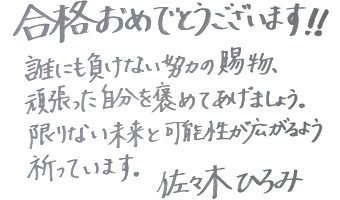 合格おめでとうございます!!
誰にも負けない努力の賜物、
頑張った自分を褒めてあげましょう。
限りない未来と可能性が広がるよう
祈っています。
佐々木ひろみ